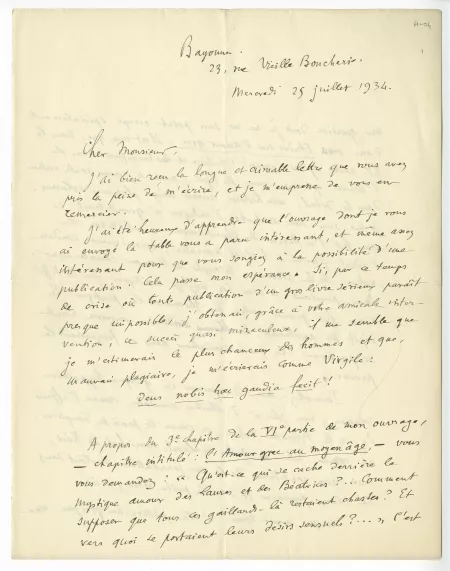 Bayonne.
23, rue Vieille Boucherie.
Mercredi 25 juillet 1934.
Cher Monsieur,
J'ai bien reçu la longue et aimable lettre que vous avez
pris la peine de m'écrire, et je m'empresse de vous en
remercier.
J'ai été heureux d'apprendre que l'ouvrage dont je vous
ai envoyé la table vous a paru intéressant, et même assez
intéressant pour que vous songiez à la possibilité d'une
publication. Cela passe mon espérance. Si, par ce temps
de crise où toute publication d'un gros livre sérieux paraît
presque impossible, j'obtenais, grâce à votre amicale inter-
vention, ce succès quasi miraculeux, il me semble que
je m'estimerais le plus chanceux des hommes et que,
mauvais plagiaire, je m'écrierais comme Virgile :
Deus nobis haec gaudia fecit !
A propos du 3e chapitre de la VIe partie de mon ouvrage,
— chapitre intitulé : l'Amour grec au moyen âge, — vous
vous demandez : « Qu'est-ce qui se cache derrière le
mystique amour des Laures et des Béatrices ?... Comment
supposer que tous ces gaillards-là restaient chastes ? Et
vers quoi se portaient leurs désirs sensuels ?... » C'est